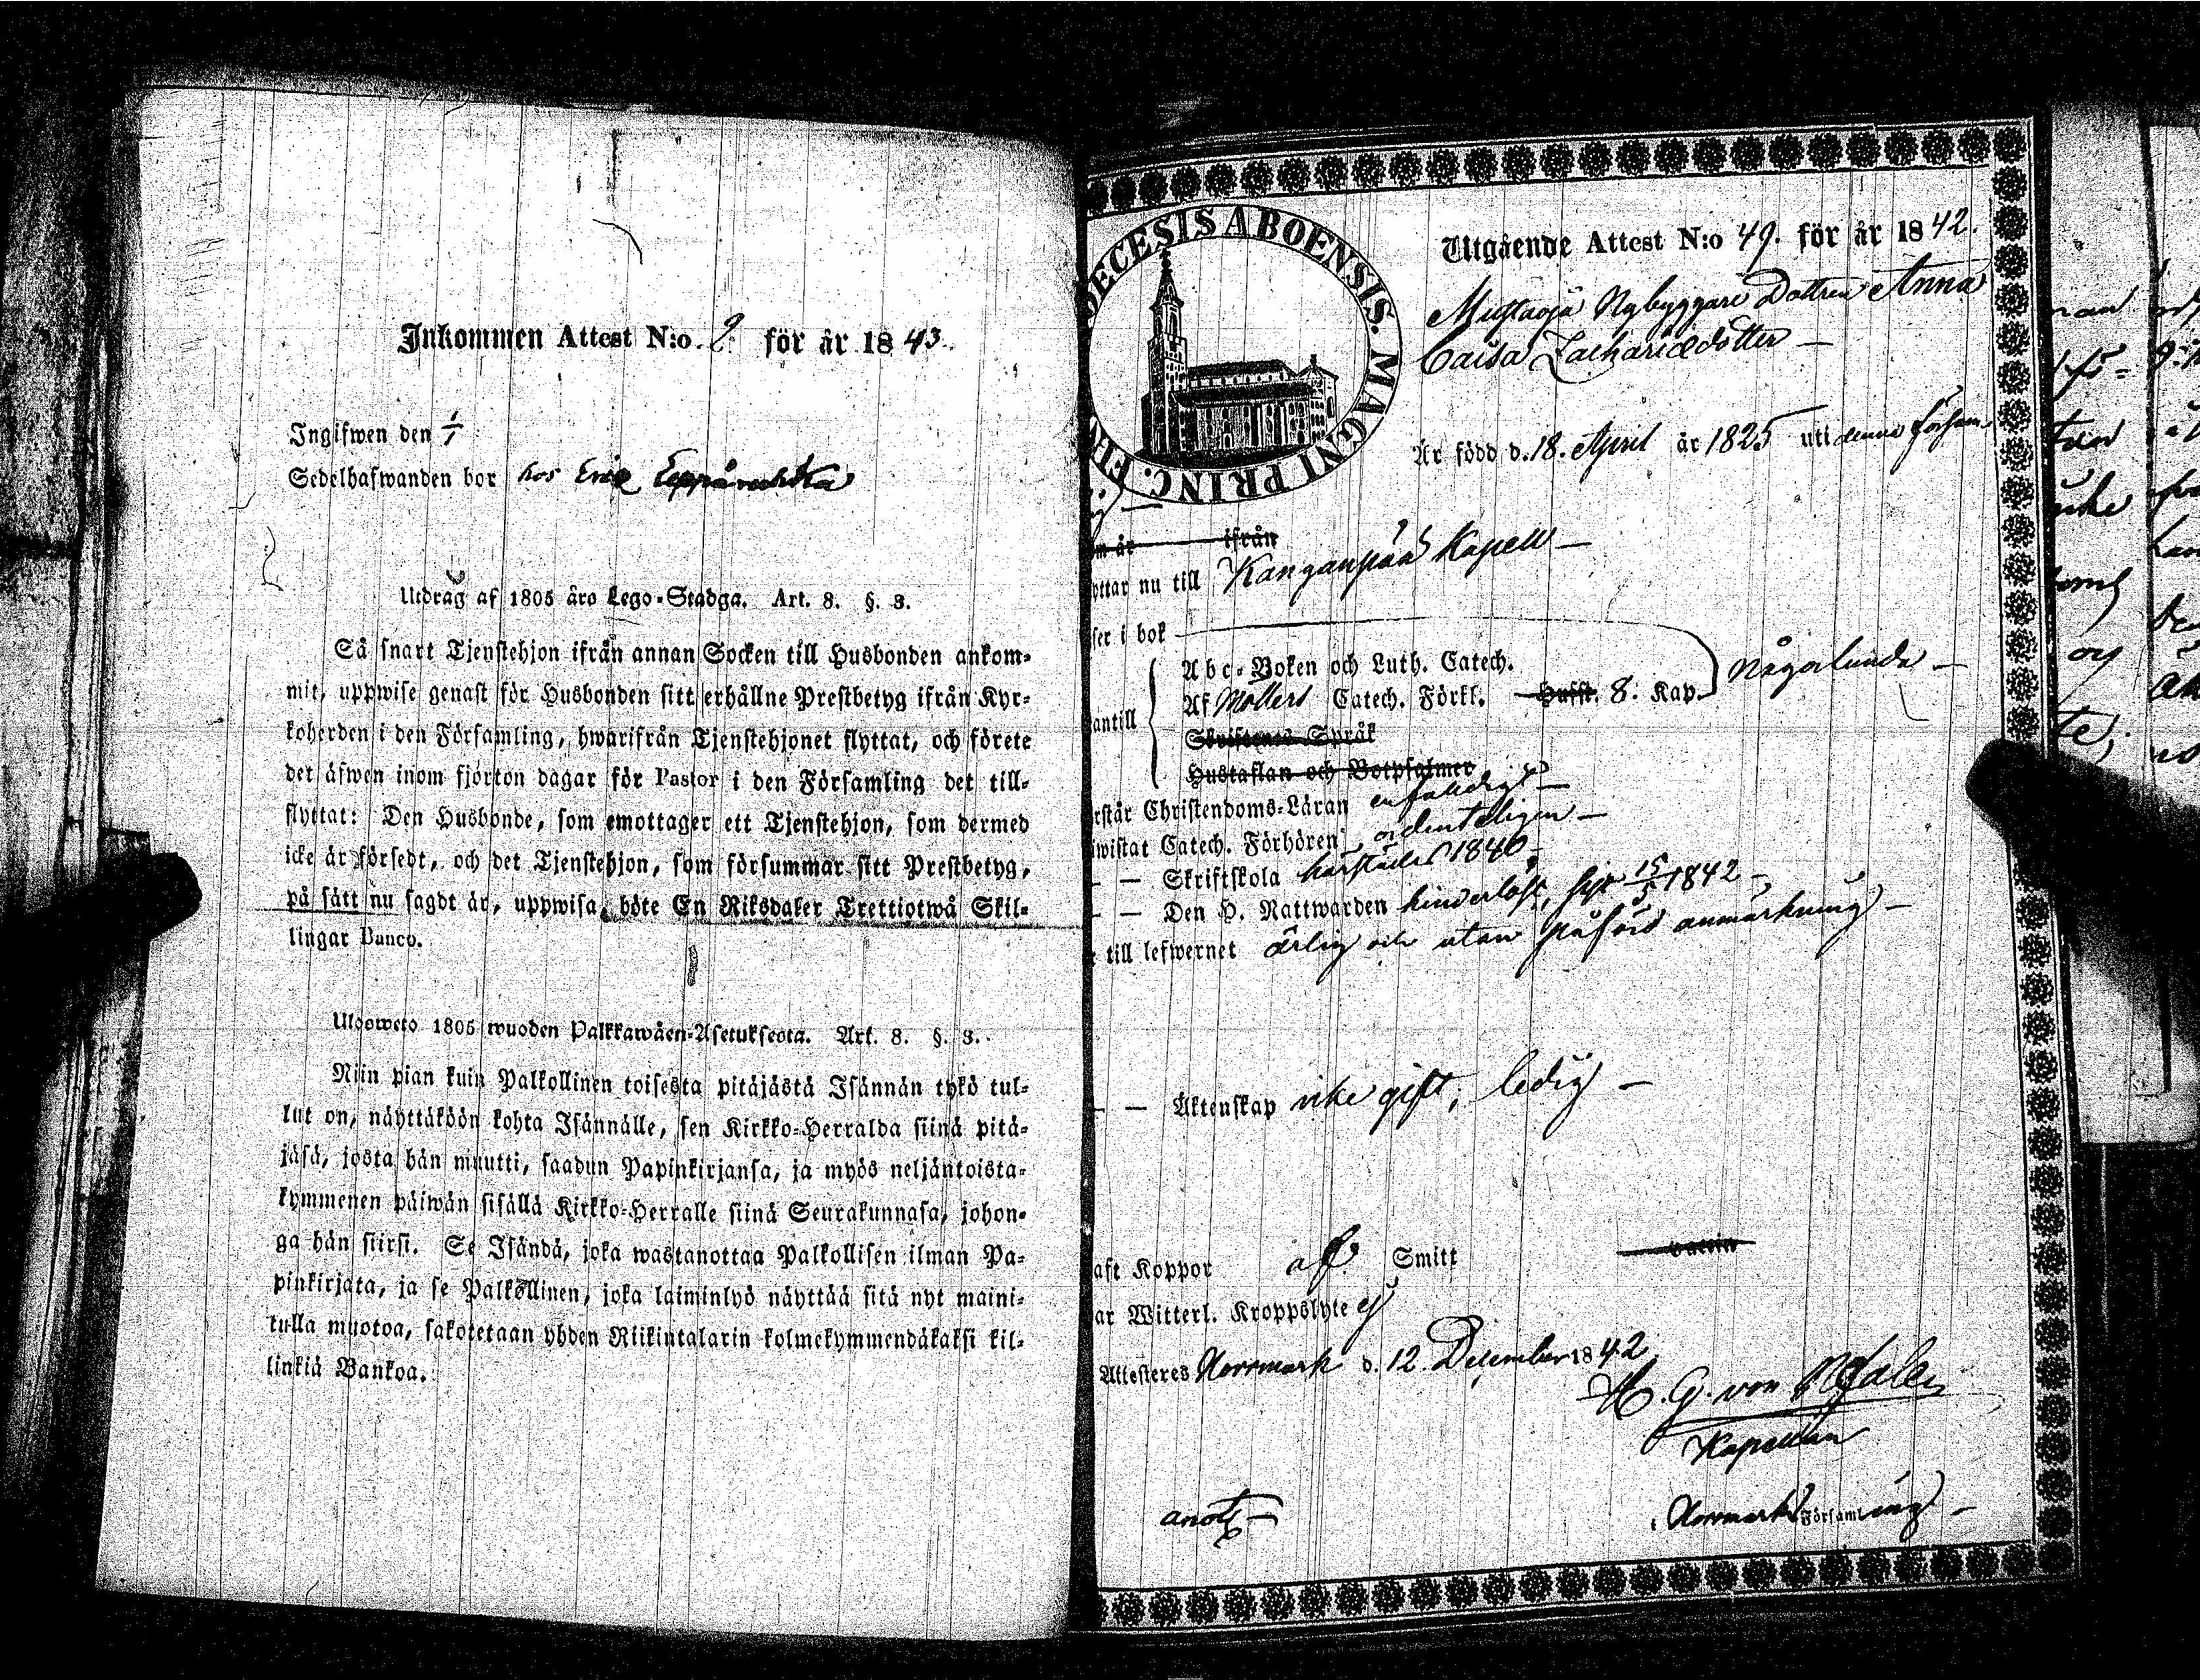 Inkommen Attest N:o 2. för år 1843.
Ingifwen den 1/1
Sedelhafwanden bor hos Eric
Utdrag af 1805 års Lego-Stadga. Art. 8. §. 3.
Så snart Tjenstehjon ifrån annan Socken till Husbonden ankom-
mit, uppwise genast för Husbonden sitt erhållne Prestbetyg ifrån Kyr-
koherden i den Församling, hwarifrån Tjenstehjonet flyttat, och förete
det äfwen inom fjorton dagar för Pastor i den Församling det till-
flyttat: Den Husbonde, som emottager ett Tjenstehjon, som dermed
icke är försedt, och det Tjenstehjon, som försummar sitt Prestbetyg,
på sätt nu sagdt är, uppwisa, böte En Riksdaler Trettiotwå Skil-
lingar Banco.
Ulosweto 1805 wuoden Palkkawäen-Asetuksesta. Art. 8. §. 3.
Niin pian kuin Palkollinen toisesta pitäjästä Isännän tykö tul-
lut on, näyttäköön kohta Isännälle, sen Kirkko-Herralda siinä pitä-
jäsä, josta hän muutti, saadun Papinkirjansa, ja myös neljäntoista-
kymmenen päiwän sisällä Kirkko-Herralle siinä Seurakunnasa, johon-
ga hän siirsi. Se Isändä, joka wastanottaa Palkollisen ilman Pa-
pinkirjata, ja se Palkollinen, joka laiminlyö näyttää sitä nyt maini-
tulla muotoa, sakotetaan yhden Riikintalarin kolmekymmendäkaksi kil-
linkiä Bankoa.
DECESIS ABOENSIS. MAGNI PRINC. FIN
Utgående Attest N:o 49. för år 1842.
Nybyggare Dottren Anna
Caisa Zachariædotter
Är född d. 18. April år 1825 uti denna Försam
m år ifrån
yttar nu till Kanganpää Kapell
ser i bok
Abc-Boken och Luth. Catech.
Af Möllers Catech. Förkl. Husst. 8. Kap. någorlunda
antill
Skriftenes Språk
Hustaflan och Botpsalmer
rstår Christendoms-Läran enfaldigt
iwistat Catech. Förhören ordenteligen
Skriftskola härstädes 1840
Den H. Nattwarden hinderlöst, sist 15/5 1842
till lefwernet ärlig och utan påförd anmärkning
Äktenskap icke gift, ledig
aft Koppor af Smitt
ar Witterl. Kroppslyte ej
Attesteres Norrmark d. 12. December 1842
H. G. von
Kapellan
anot
i Norrmark Församling